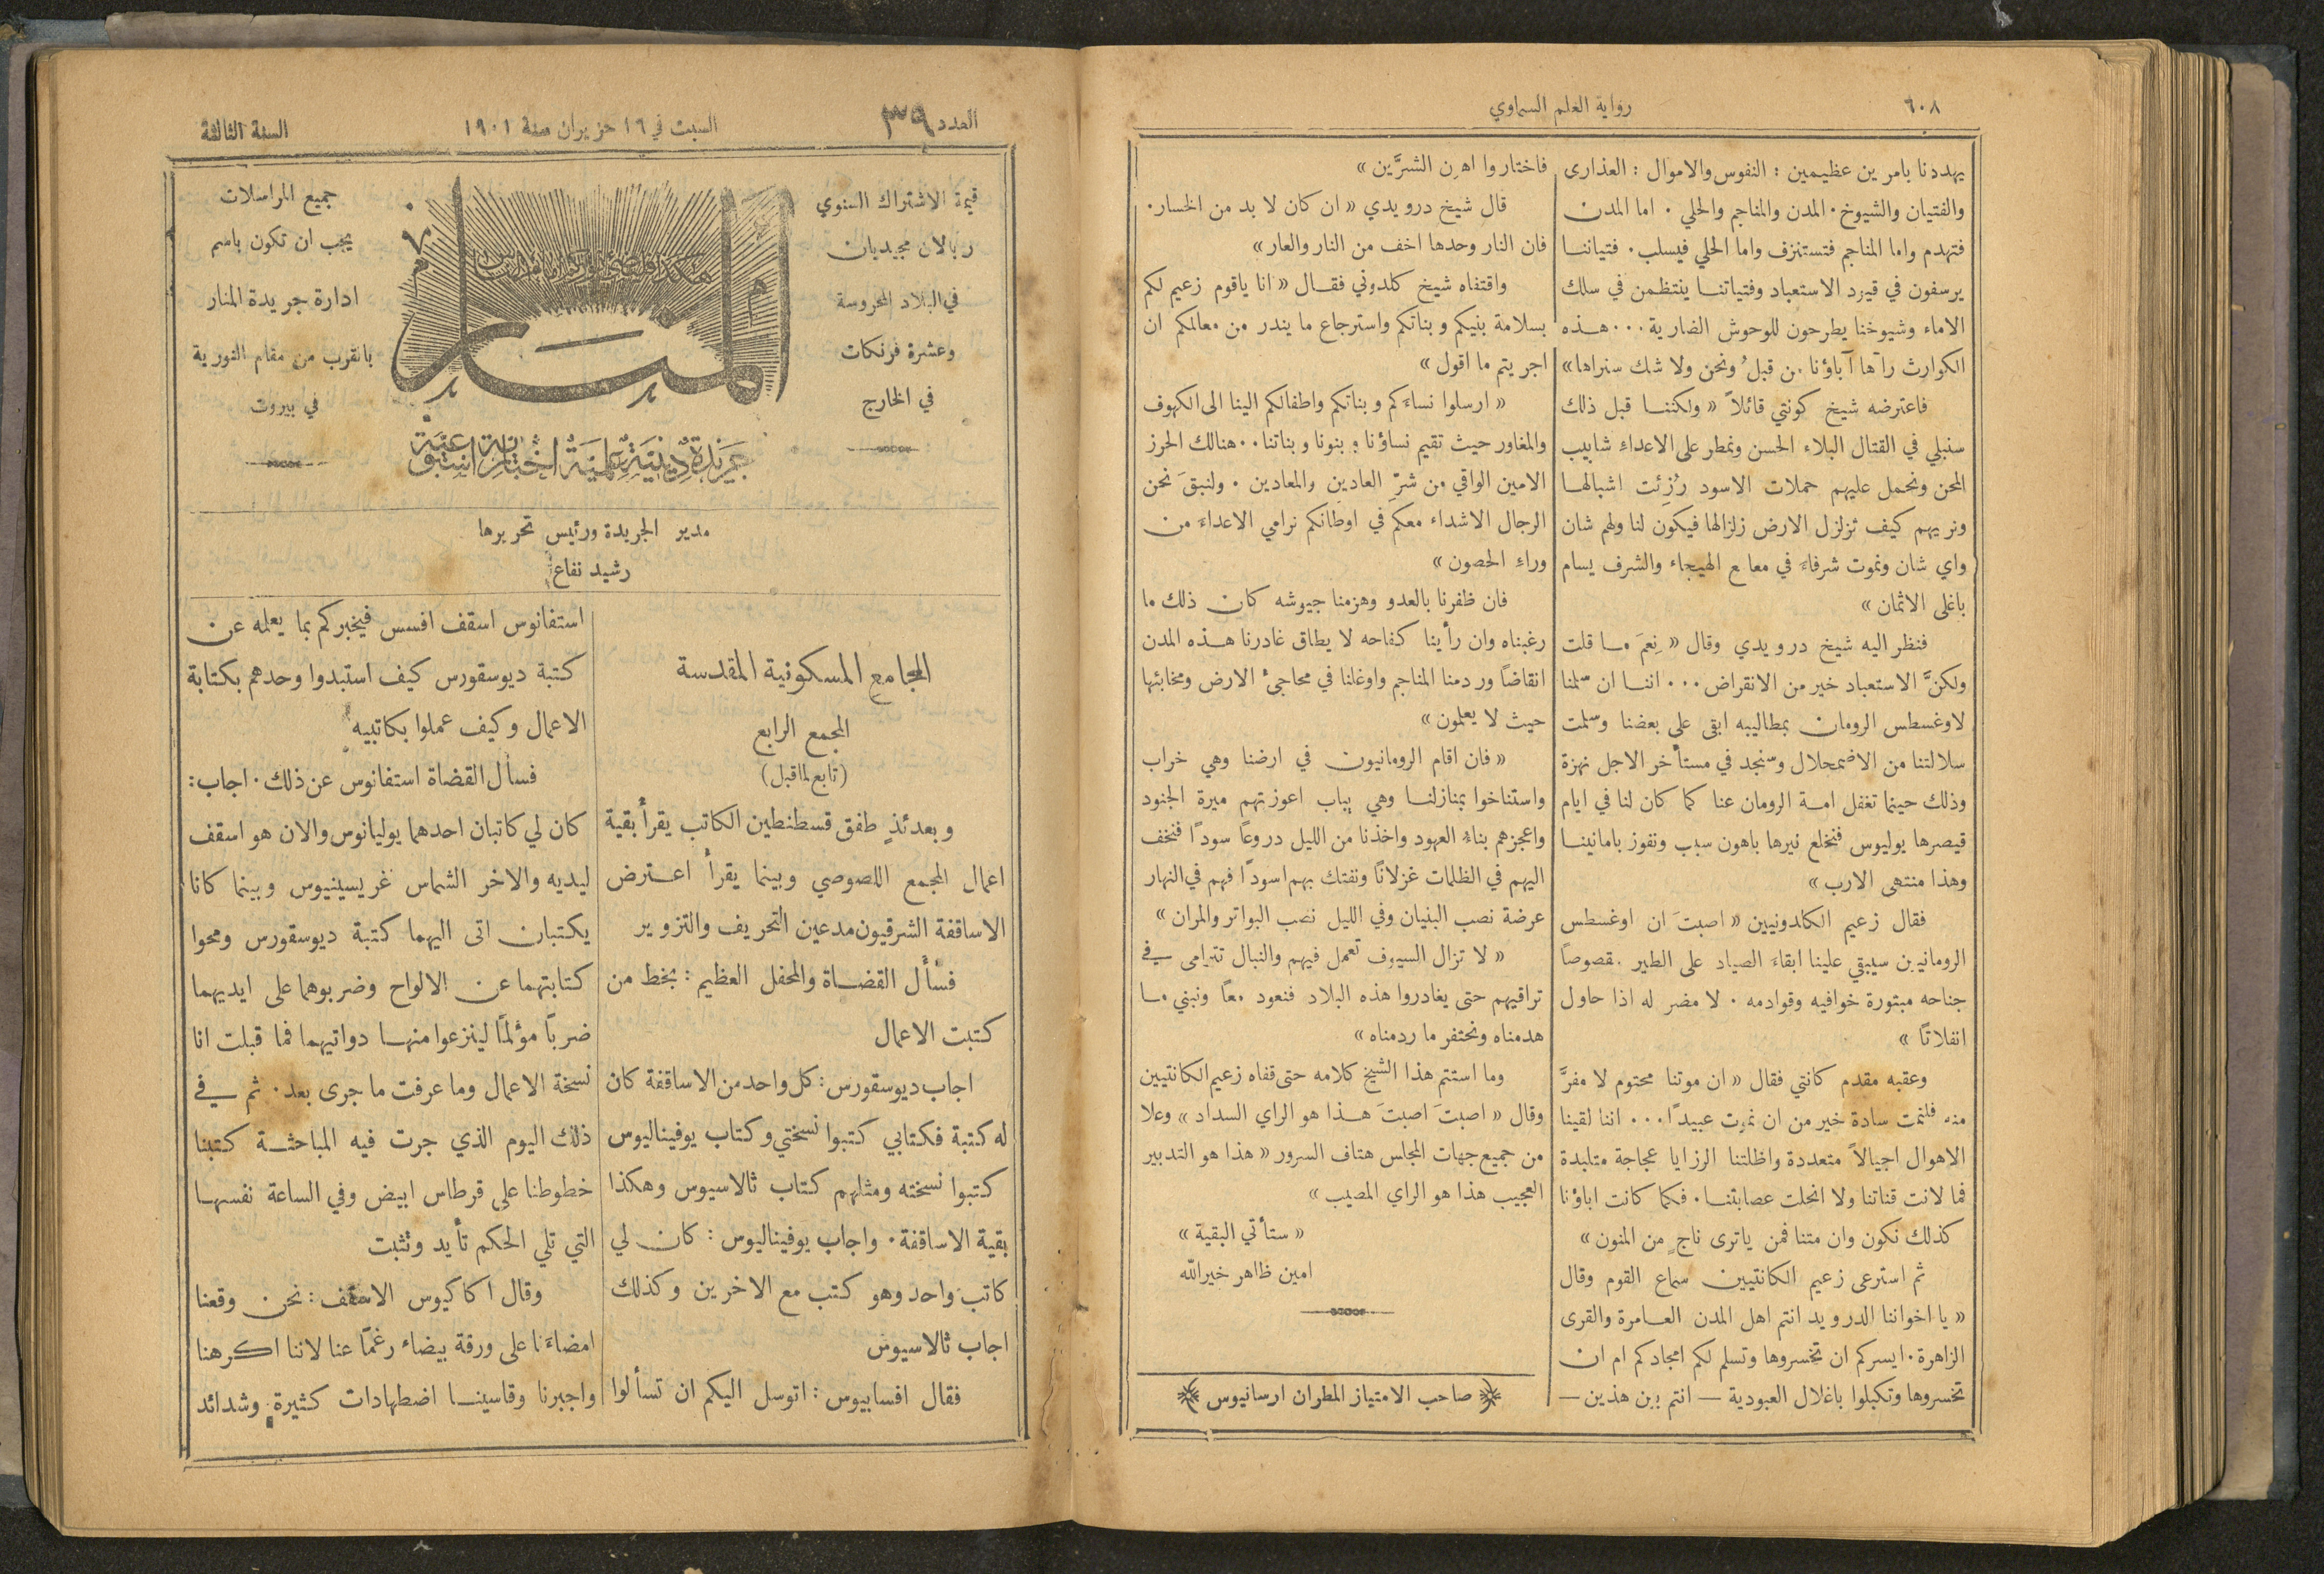 ٦٠٨
رواية العلم السماوي
يهددنا بامرين عظيمين : النفوس والاموال : العذارى
والفتيان والشيوخ٠ المدن والمناجم والحلي ٠ اما المدن
فتهدم واما المناجم فتستنزف واما الحلي فيسلب٠ فتياننا
يرسفون في قيود الاستعباد وفتياتنا ينتظمن في سلك
الاماء وشيوخنا يطرحون للوحوش الضارية٠٠٠ هذه
الكوارث رآها آباؤنا من قبلُ ونحن ولا شك سنراها»
فاعترضه شيخ كونتي قائلاً « ولكننا قبل ذلك
سنبلي في القتال البلاء الحسن ونمطر على الاعداءِ شابيب
المحن ونحمل عليهم حملات الاسود رُزِئت اشبالها
ونريهم كيف تزلزل الارض زلزالها فيكون لنا ولهم شان
واي شان ونموت شرفاءَ في معامع الهيجاء والشرف يسام
باغلى الاثمان »
فنظر اليه شيخ درويدي وقال « نِعمَ ما قلت
ولكنَّ الاستعباد خير من الانقراض٠٠٠ اننا ان سلمنا
لاوغسطس الرومان بمطاليبه ابقى على بعضنا وسلمت
سلالتنا من الاضمحلال وسنجد في مستأخر الاجل نهزة
وذلك حينما تغفل امة الرومان عنا كما كان لنا في ايام
قيصرها يوليوس فنخلع نيرها باهون سبب ونفوز بامانينا
وهذا منتهى الارب »
فقال زعيم الكلدونيين « اصبتَ ان اوغسطس
الرومانيين سيبقي علينا ابقاءَ الصياد على الطير مقصوصاً
جناحه مبتورة خوافيه وقوادمه ٠ لا مفر له اذا حاول
انفلاتاً »
وعقبه مقدم كانتي فقال « ان موتنا محتوم لا مفرَّ
منه فلنمت سادة خير من ان نموت عبيدًا٠٠٠ اننا لقينا
الاهوال اجيالاً متعددة واظلتنا الرزايا عجاجة متلبدة
فما لانت قناتنا ولا انحلت عصابتنا٠ فكما كانت اباؤنا
كذلك نكون وان متنا فمن ياترى ناجٍ من المنون »
ثم استرعى زعيم الكانتيين سماع القوم وقال
« يا اخواننا الدرويد انتم اهل المدن العامرة والقرى
الزاهرة٠ ايسركم ان تخسروها وتسلم لكم امجادكم ام ان
تخسروها وتكبلوا باغلال العبودية — انتم بين هذين —
فاختاروا اهون الشرَّين »
قال شيخ درويدي « ان كان لا بد من الخسار٠
فان النار وحدها اخف من النار والعار»
واقتفاه شيخ كلدوني فقال « انا ياقوم زعيم لكم
بسلامة بنيكم وبناتكم واسترجاع ما يندر من معالمكم ان
اجريتم ما اقول »
« ارسلوا نساءَكم وبناتكم واطفالكم الينا الى الكهوف
والمغاور حيث تقيم نساؤنا وبنونا وبناتنا٠٠ هنالك الحرز
الامين الواقي من شرِّ العادين والمعادين ٠ ولنبقَ نحن
الرجال الاشداء معكم في اوطانكم نرامي الاعداءَ من
وراءِ الحصون »
فان ظفرنا بالعدو وهزمنا جيوشه كان ذلك ما
رغبناه وان رأينا كفاحه لا يطاق غادرنا هذه المدن
انقاضاً وردمنا المناجم واوغلنا في محاجئ الارض ومخابئها
حيث لا يعلمون »
« فان اقام الرومانيون في ارضنا وهي خراب
واستناخوا بمنازلنا وهي يباب اعوزتهم ميرة الجنود
واعجزهم بناء العهود واخذنا من الليل دروعاً سودًا فنخف
اليهم في الظلمات غزلاناً ونفتك بهم اسودًا فهم في النهار
عرضة نصب البنيان وفي الليل نصب البواتر والمران »
« لا تزال السيوف تعمل فيهم والنبال تترامى في
تراقيهم حتى يغادروا هذه البلاد فنعود معاً ونبني ما
هدمناه ونحتفر ما ردمناه »
وما استتم هذا الشيخ كلامه حتى قفاه زعيم الكانتيين
وقال « اصبتَ اصبتَ هذا هو الراي السداد » وعلا
من جميع جهات المجلس هتاف السرور « هذا هو التدبير
العجيب هذا هو الراي المصيب »
« ستأتي البقية »
امين ظاهر خيرالله
صاحب الامتياز المطران ارسانيوس
العدد ٣٩
السبت في ١٦ حزيران سنة ١٩٠١
السنة الثالثة
قيمة الاشتراك السنوي
ريالان مجيديان
في البلاد المحروسة
وعشرة فرنكات
في الخارج
هكذا فليضئ نوركم قدام الناس
المنار
جريدة دينية علمية اخبارية اسبوعية
جميع المراسلات
يجب ان تكون باسم
ادارة جريدة المنار
بالقرب من مقام النورية
في بيروت
مدير الجريدة ورئيس تحريرها
رشيد نفاع
المجامع المسكونية المقدسة
المجمع الرابع
(تابع لماقبل)
وبعدئذٍ طفق قسطنطين الكاتب يقرأ بقية
اعمال المجمع اللصوصي وبينما يقرأ اعترض
الاساقفة الشرقيون مدعين التحريف والتزوير
فسأل القضاة والمحفل العظيم : بخط من
كتبت الاعمال
اجاب ديوسقورس : كل واحد من الاساقفة كان
له كتبة فكتابي كتبوا نسختي وكتاب يوفيناليوس
كتبوا نسخته ومثلهم كتاب ثالاسيوس وهكذا
بقية الاساقفة٠ واجاب يوفيناليوس : كان لي
كاتب واحد وهو كتب مع الاخرين وكذلك
اجاب ثالاسيوس
فقال افسابيوس : اتوسل اليكم ان تسألوا
استفانوس اسقف افسس فيخبركم بما يعلمه عن
كتبة ديوسقورس كيف استبدوا وحدهم بكتابة
الاعمال وكيف عملوا بكاتبيه
فسأل القضاة استفانوس عن ذلك٠ اجاب :
كان لي كاتبان احدهما يوليانوس والان هو اسقف
ليديه والاخر الشماس غريسبنيوس وبينما كانا
يكتبان اتى اليهما كتبة ديوسقورس ومحوا
كتابتهما عن الالواح وضربوهما على ايديهما
ضرباً مؤلماً لينزعوا منها دواتيهما فما قبلت انا
نسخة الاعمال وما عرفت ما جرى بعد٠ ثم في
ذلك اليوم الذي جرت فيه المباحثة كتبنا
خطوطنا على قرطاس ابيض وفي الساعة نفسها
التي تلي الحكم تأيد وتثبت
وقال اكاكيوس الاسقف : نحن وقعنا
امضاءَنا على ورقة بيضاء رغماً عنا لاننا اكرهنا
واجبرنا وقاسينا اضطهادات كثيرة وشدائد